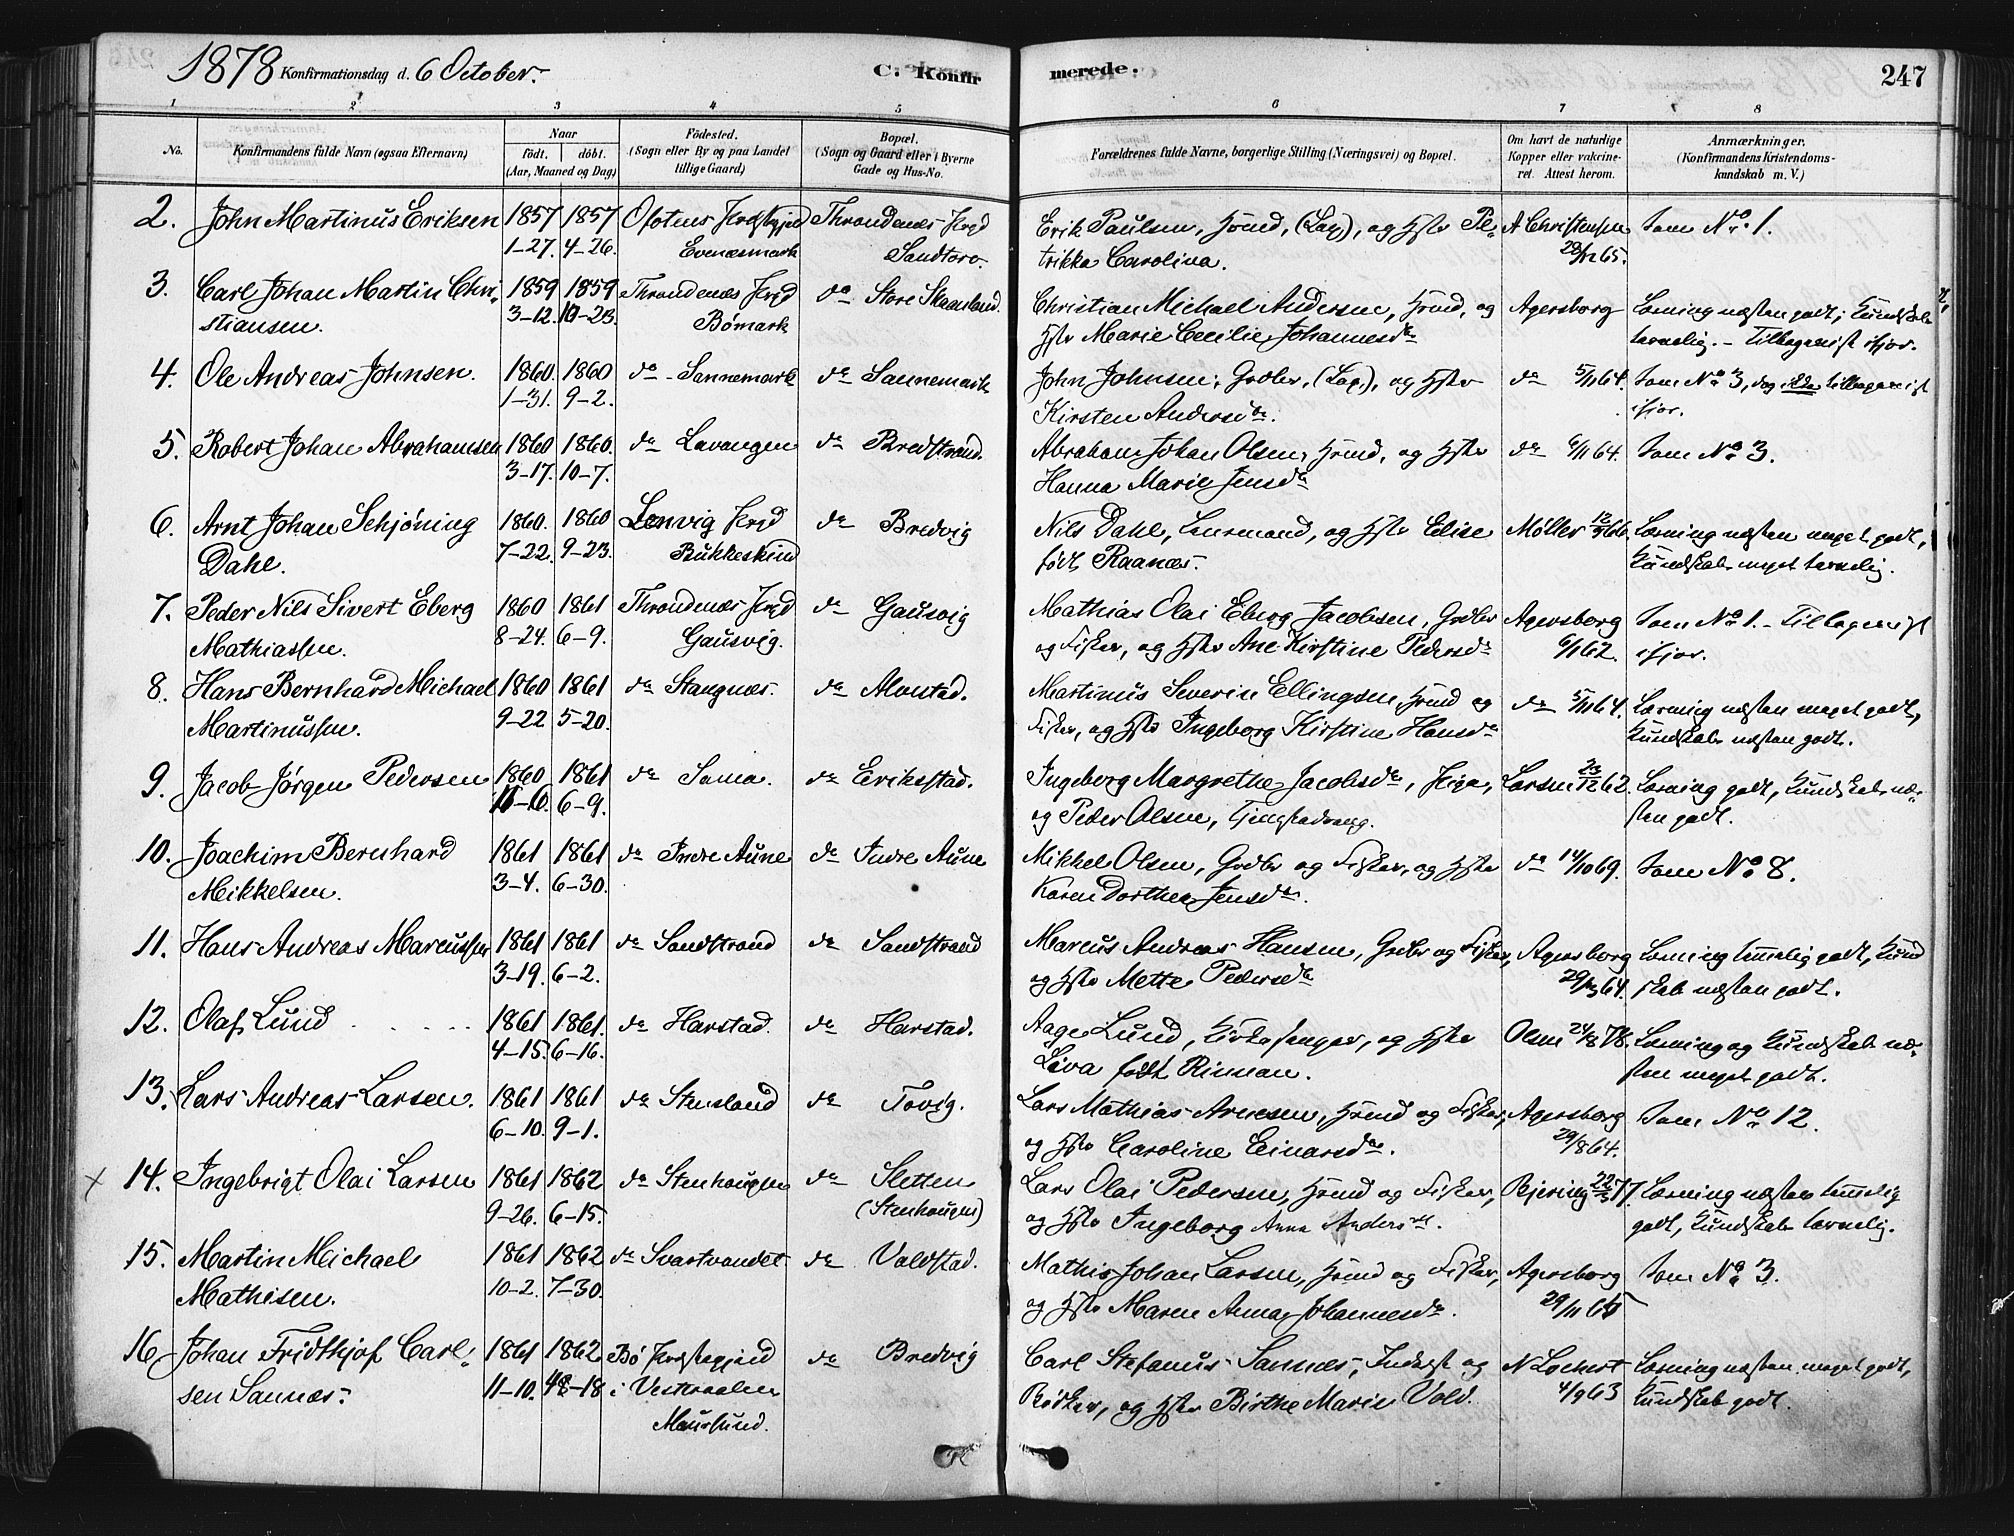 1878 Konfirmationsdag d. 6 October. C. Konfirmerede. 247
1 2 3 4 5 6 7 8
No. Konfirmandens fulde Navn (ogsaa Efternavn) Naar født. døbt. (Aar, Maaned og Dag) Fødested. (Sogn eller By og paa Landet tillige Gaard) Bopæl. (Sogn og Gaard eller i Byerne Gade og Hus-No. Forældrenes fulde Navne, borgerlige Stilling (Næringsvei) og Bopæl. Om havt de naturlige Kopper eller vakcineret. Attest herom. Anmærkninger. (Konfirmandens Kristendomskundskab m. V.)
2. John Martinus Eriksen 1857 1857 Ofotens Throndenæs Erik Paulsen, (Lap), og Pe- A Christensen Som No. 1.
1-27. 4-26. Evenæsmark Sandtorv. trikka Carolina. 65.
3. Carl Johan Martin Chri- 1859 1859 Throndenæs do Store Skaanland. Christian Michael Andersen, og Agersborg Læsning næsten godt; Kundskab
stiansen. 3-12. 10-23. Bømark Marie Cecilie Johannesdr tarvelig. - Tilbagevist ifjor.
4. Ole Andreas Johnsen. 1860. 1860 do Sannemark do Sannemark John Johnsen, Grdbr, (Lap), og do 5/11 64. Som No. 3, dog ikke tilbagevist
1-31. 9-2. Kirsten Andersdr. ifjor.
5. Robert Johan Abrahamsen 1860 1860. do Lavangen do Bredstrand. Abraham Johan Olsen, og do 6/11 64. Som No 3.
3-17. 10-7. Hanna Marie Jensdr
6. Arnt Johan Schjöning 1860. 1860 Lenvig do Bredvig Nils Dahl, Lensmand, og Elise Møller 66. Læsning næsten meget godt,
Dahl. 7-22. 9-23. Bukkeskind født Raanæs. Kundskab meget tarvelig.
7. Peder Nils Sivert Eberg 1860 1861 Throndenæs do Gausvig Mathias Olai Eberg Jacobsen, Grdbr Agersborg Som No 1. - Tilbagevist
Mathiassen. 8-24. 6-9. Gausvig. og Fisker, og Ane Kirstine Pedersdr 62. ifjor.
8. Hans Bernhard Michael 1860 1861 do Stangnæs. do Alvestad. Martinus Severin Ellingsen, og do 5/11 64. Læsning næsten meget godt,
Martinussen. 9-22 5-20. Fisker, og Ingeborg Kirstine Hansdr Kundskab næsten godt.
9. Jacob Jørgen Pedersen 1860 1861 do Sama. do Erikstad. Ingeborg Margrethe Jacobsdr, Pige, Larsen 23/12 62. Læsning godt, Kundskab næ-
11-10. 6-9. og Peder Olsen, sten godt.
10. Joachim Bernhard 1861 1861 do Indre Aune do Indre Aune Mikkel Olsen, Grdbr og Fisker, og do 14/10 69. Som No. 8.
Mikkelsen. 3-4. 6-30. Karen Dorthea Jensdr.
11. Hans Andreas Marcussen 1861 1861 do Sandstrand do Sandstrand Marcus Andreas Hansen, Grdbr og Fisker, Agersborg Læsning temmelig godt, Kund
3-19. 6-2. og Mette Pedersdr 64. skab næsten godt.
12. Olaf Lund 1861 1861. do Harstad. do Harstad. Aage Lund, Kirkesanger, og Olsen 24/8 78. Læsning og Kundskab næ-
4-15. 6-16. Lava født Rinnan. sten meget godt.
13. Lars Andreas Larsen. 1861 1861 do Stensland do Tovig. Lars Mathias Arnesen, og Fisker, Agersborg Som No 12.
6-10. 9-1. og Caroline Einarsdr. 29/8 64.
14. Ingebrigt Olai Larsen 1861 1862 do Stenhaugen do Sletten Lars Olai Pedersen, og Fisker, Bjering 77. Læsning næsten temmelig
9-26. 6-15. (Stenhaugen) og Ingeborg Anna Andersdr. godt, Kundskab tarvelig.
15. Martin Meichael 1861 1862 do Svartvandet do Voldstad. Mathis Johan Larsen, og Fisker, Agersborg Som No 3.
Mathisen. 10-2. 7-30. og Maren Anna Johannesdr. 29/11 65
16 Johan Fridthjof Carl- 1861 1862 Bø do Bredvig Carl Stefanus Sannæs, Inderst og N Lochert Læsning næsten meget godt,
sen Sannæs. 11-10. 8-18 i Vesteraalen Bødker, og Birthe Marie Vold. 4/9 63 Kundskab godt.